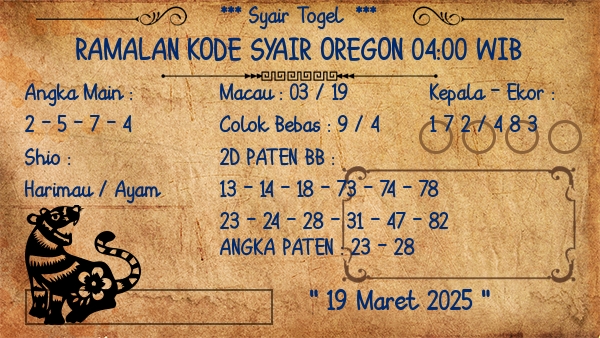 *** Syair Togel ***
RAMALAN KODE SYAIR OREGON 04:00 WIB
Angka Main :
2 - 5 - 7 - 4
Shio :
Harimau / Ayam
Macau : 03 / 19
Colok Bebas : 9 / 4
2D PATEN BB :
13 - 14 - 18 - 73 - 74 - 78
23 - 24 - 28 - 31 - 47 - 82
ANGKA PATEN : 23 - 28
Kepala - Ekor :
1 7 2 / 4 8 3
" 19 Maret 2025 "